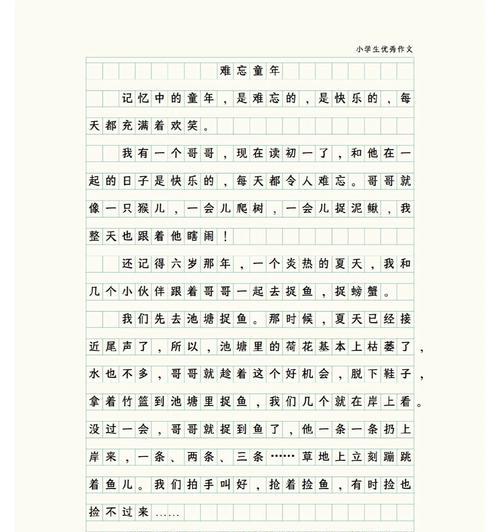 小学生优秀作文
难忘童年
记忆中的童年，是难忘的，是快乐的，每
天都充满着欢笑。
我有一个哥哥，现在读初一了，和他在一
起的日子是快乐的，每天都令人难忘。哥哥就
像一只猴儿，一会儿爬树，一会儿捉泥鳅，我
整天也跟着他瞎闹！
还记得六岁那年，一个炎热的夏天，我和
几个小伙伴跟着哥哥一起去捉鱼，捉螃蟹。
我们先去池塘捉鱼。那时候，夏天已经接
近尾声了，所以，池塘里的荷花基本上枯萎了，
水也不多，哥哥就趁着这个好机会，脱下鞋子，
拿着竹篮到池塘里捉鱼，我们几个就在岸上看。
没过一会，哥哥就捉到鱼了，他一条一条扔上
岸来，一条、两条、三条……草地上立刻蹦跳
着鱼儿。我们拍手叫好，抢着捡鱼，有时捡也
捡不过来……